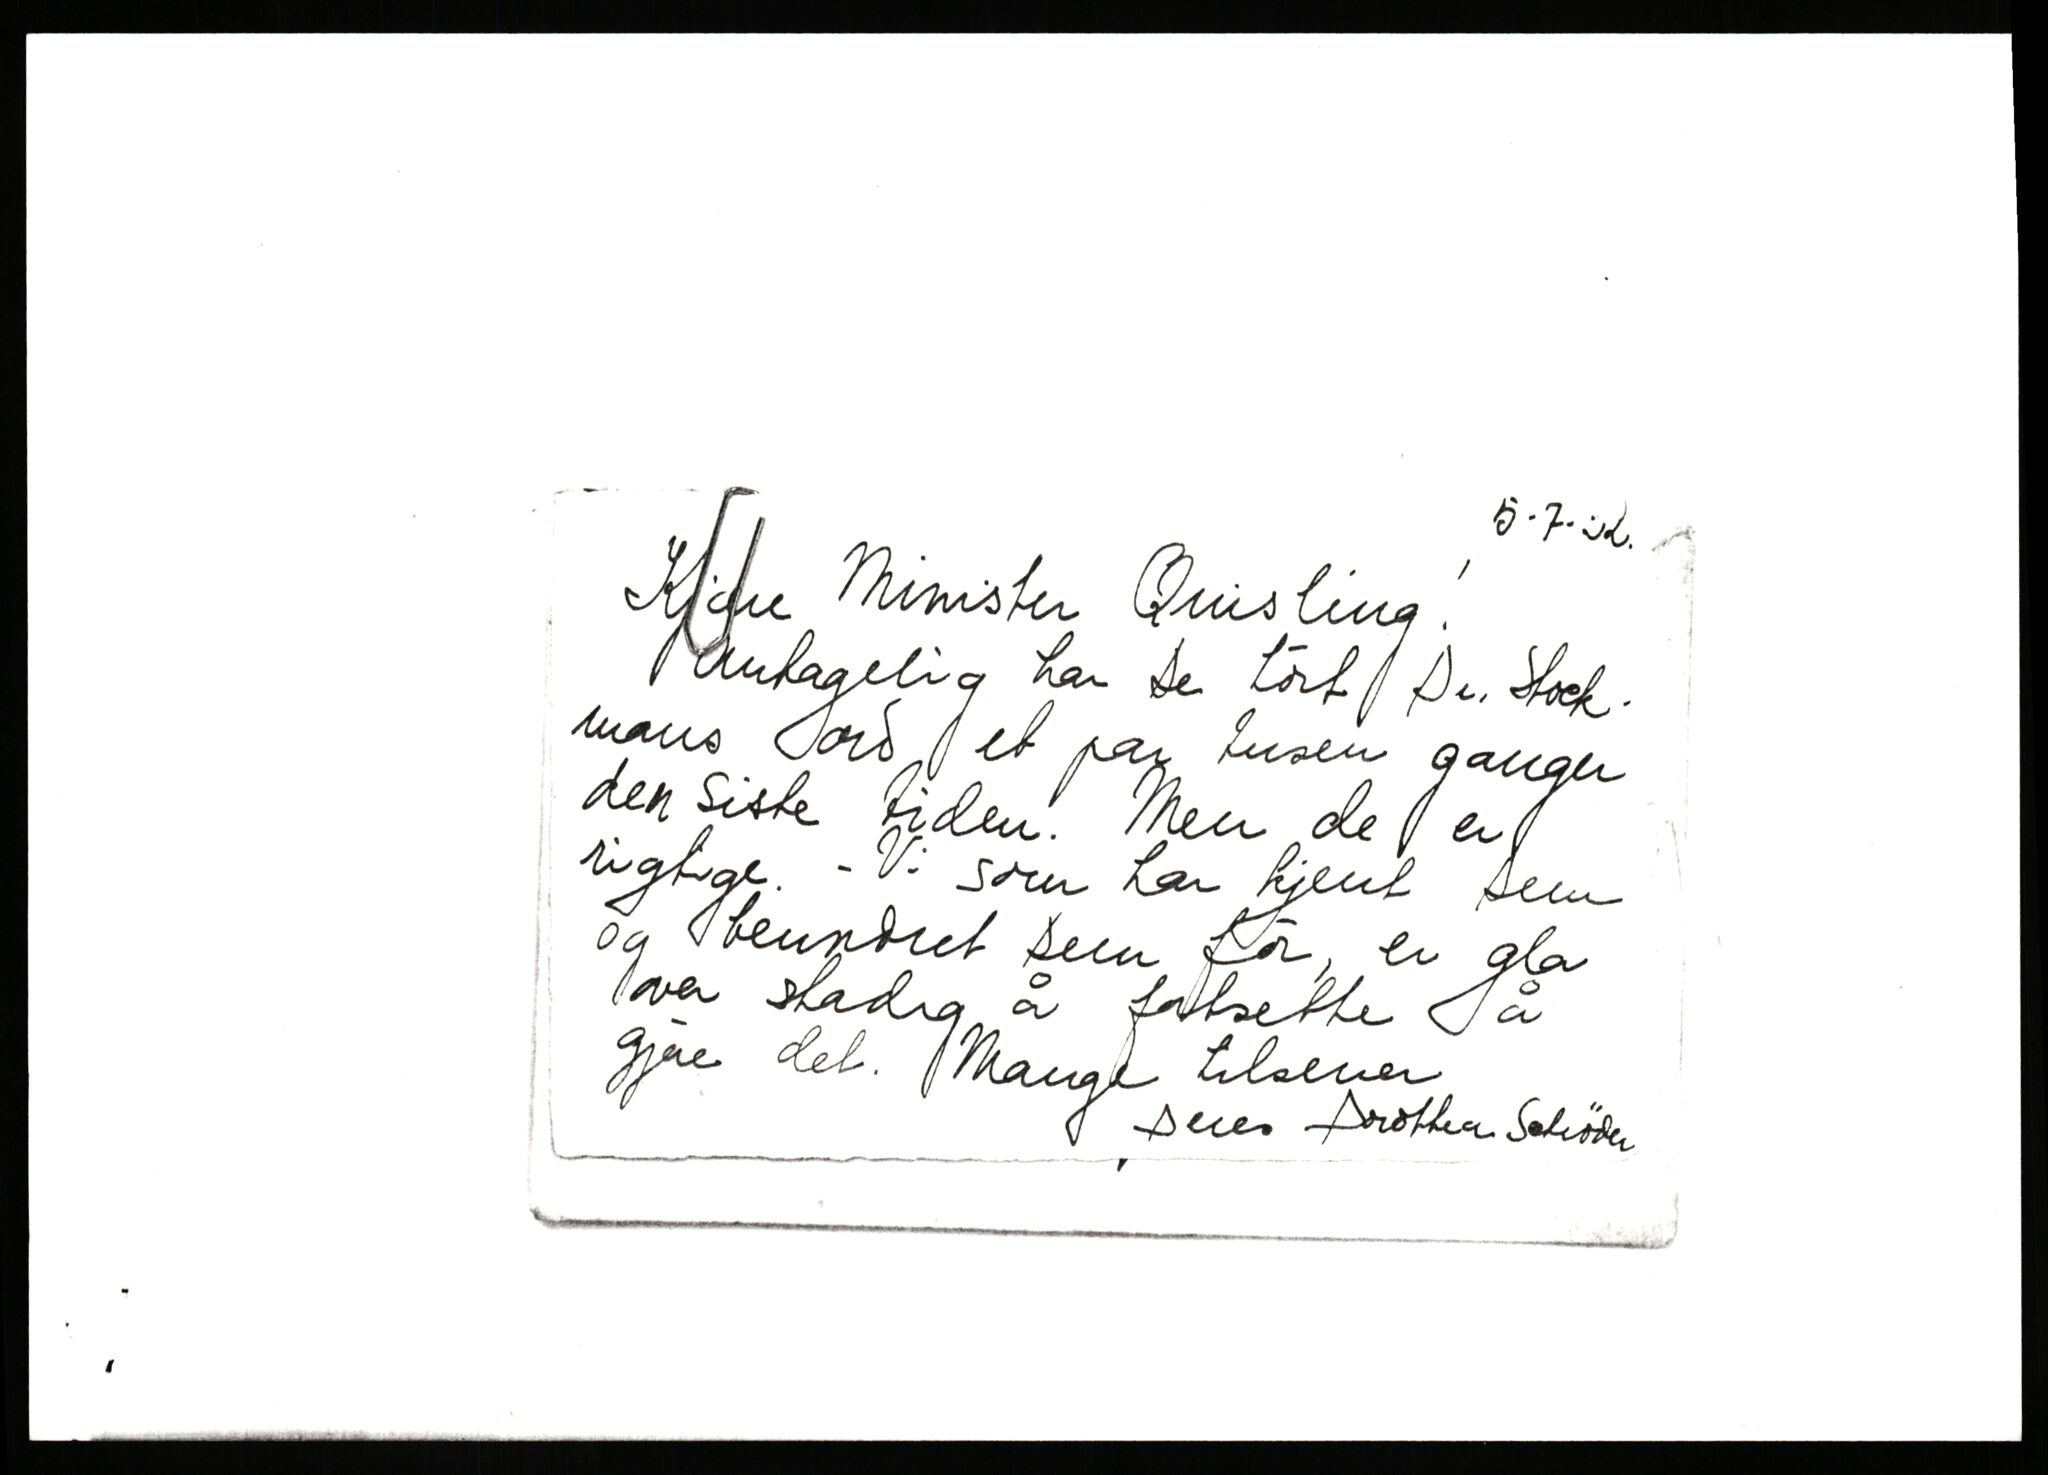 5-7-32.
Kjære Minister Quisling!
Antagelig har De hört Dr. Stock-
manns ord et par tusen ganger
den siste tiden. Men de er
rigtige. - Vi som har kjent Dem
og beundret Dem för, er gla
over stadig å fortsette å
gjøre det. Mange hilsener
Deres Dorothea Schröder